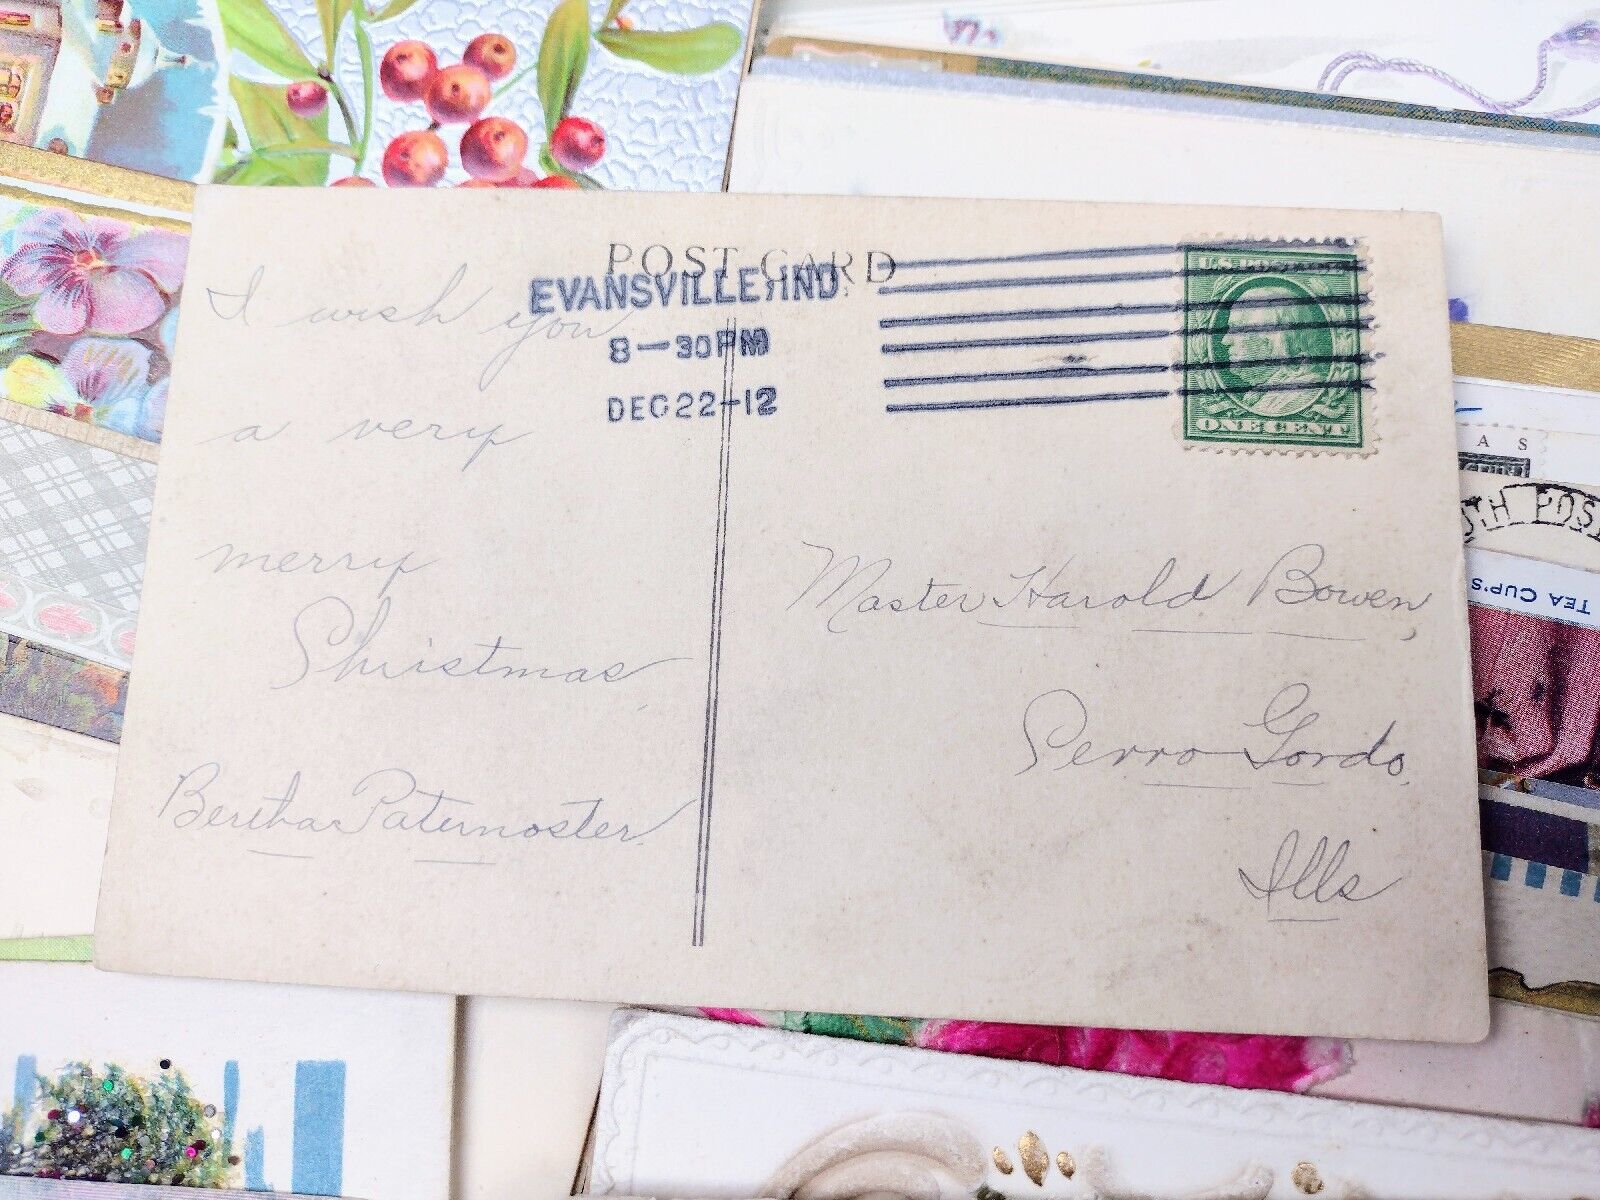 POST CARD
EVANSVILLE, IND.
8-30PM
DEC 22-12
U.S. POSTAGE
ONE CENT
I wish you
a very
merry
Christmas.
Bertha Paternoster.
Master Harold Bowen,
Cerro Gordo,
Ills
A S
TH POS
TEA CUP'S